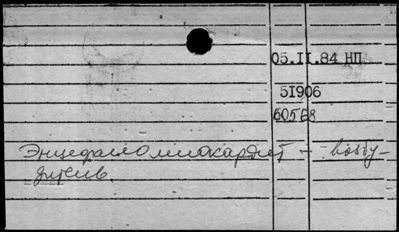 05.II.84 НП
51906
60568
Энцефаломиокардит — возбу-
дитель.